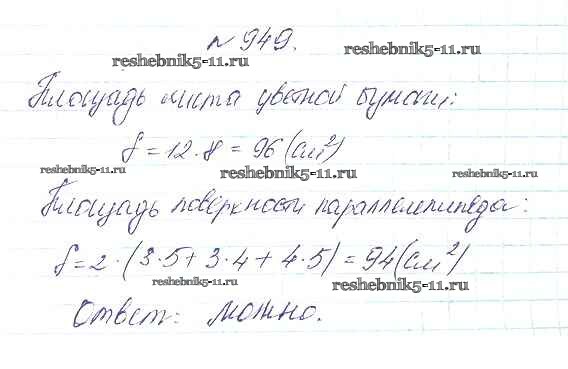 № 949.
reshebnik5-11.ru reshebnik5-11.ru
Площадь листа цветной бумаги:
S = 12 · 8 = 96 (см²)
reshebnik5-11.ru reshebnik5-11.ru reshebnik5-11.ru
Площадь поверхности параллелепипеда:
S = 2 · (3·5 + 3·4 + 4·5) = 94 (см²)
reshebnik5-11.ru reshebnik5-11.ru
Ответ: можно.